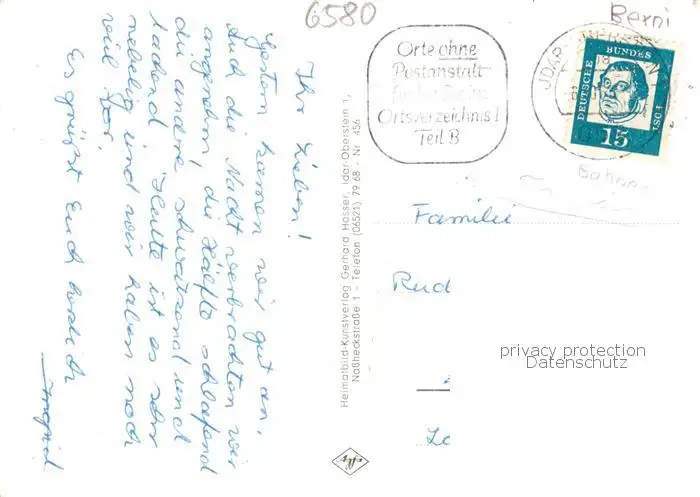 6580
Berni
Orte ohne
Postanstalt
Ortsverzeichnis I
Teil B
DEUTSCHE
BUNDES
POST
15
Familie
Rud
privacy protection
Datenschutz
Heimatbild-Kunstverlag Gerhard Hosser, Idar-Oberstein 1,
Naßheckstraße 1 - Telefon (06521) 79 68 - Nr. 456
Ihr Lieben!
Gestern kamen wir gut an.
Auch die Nacht verbrachten wir
angenehm, die Hälfte schlafend
die andere schwatzend und
lachend. Heute ist es sehr
nebelig und wir haben noch
viel vor.
Es grüßt Euch herzlich